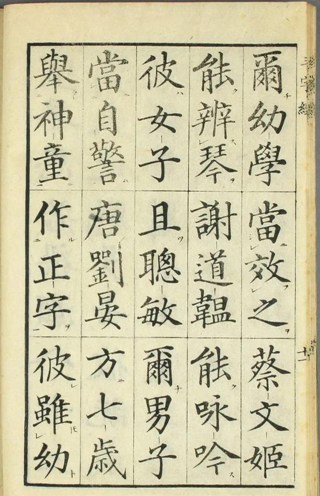 三字經
爾幼學 當效之 蔡文姬
能辨琴 謝道韞 能咏吟
彼女子 且聰敏 爾男子
當自警 唐劉晏 方七歳
舉神童 作正字 彼雖幼